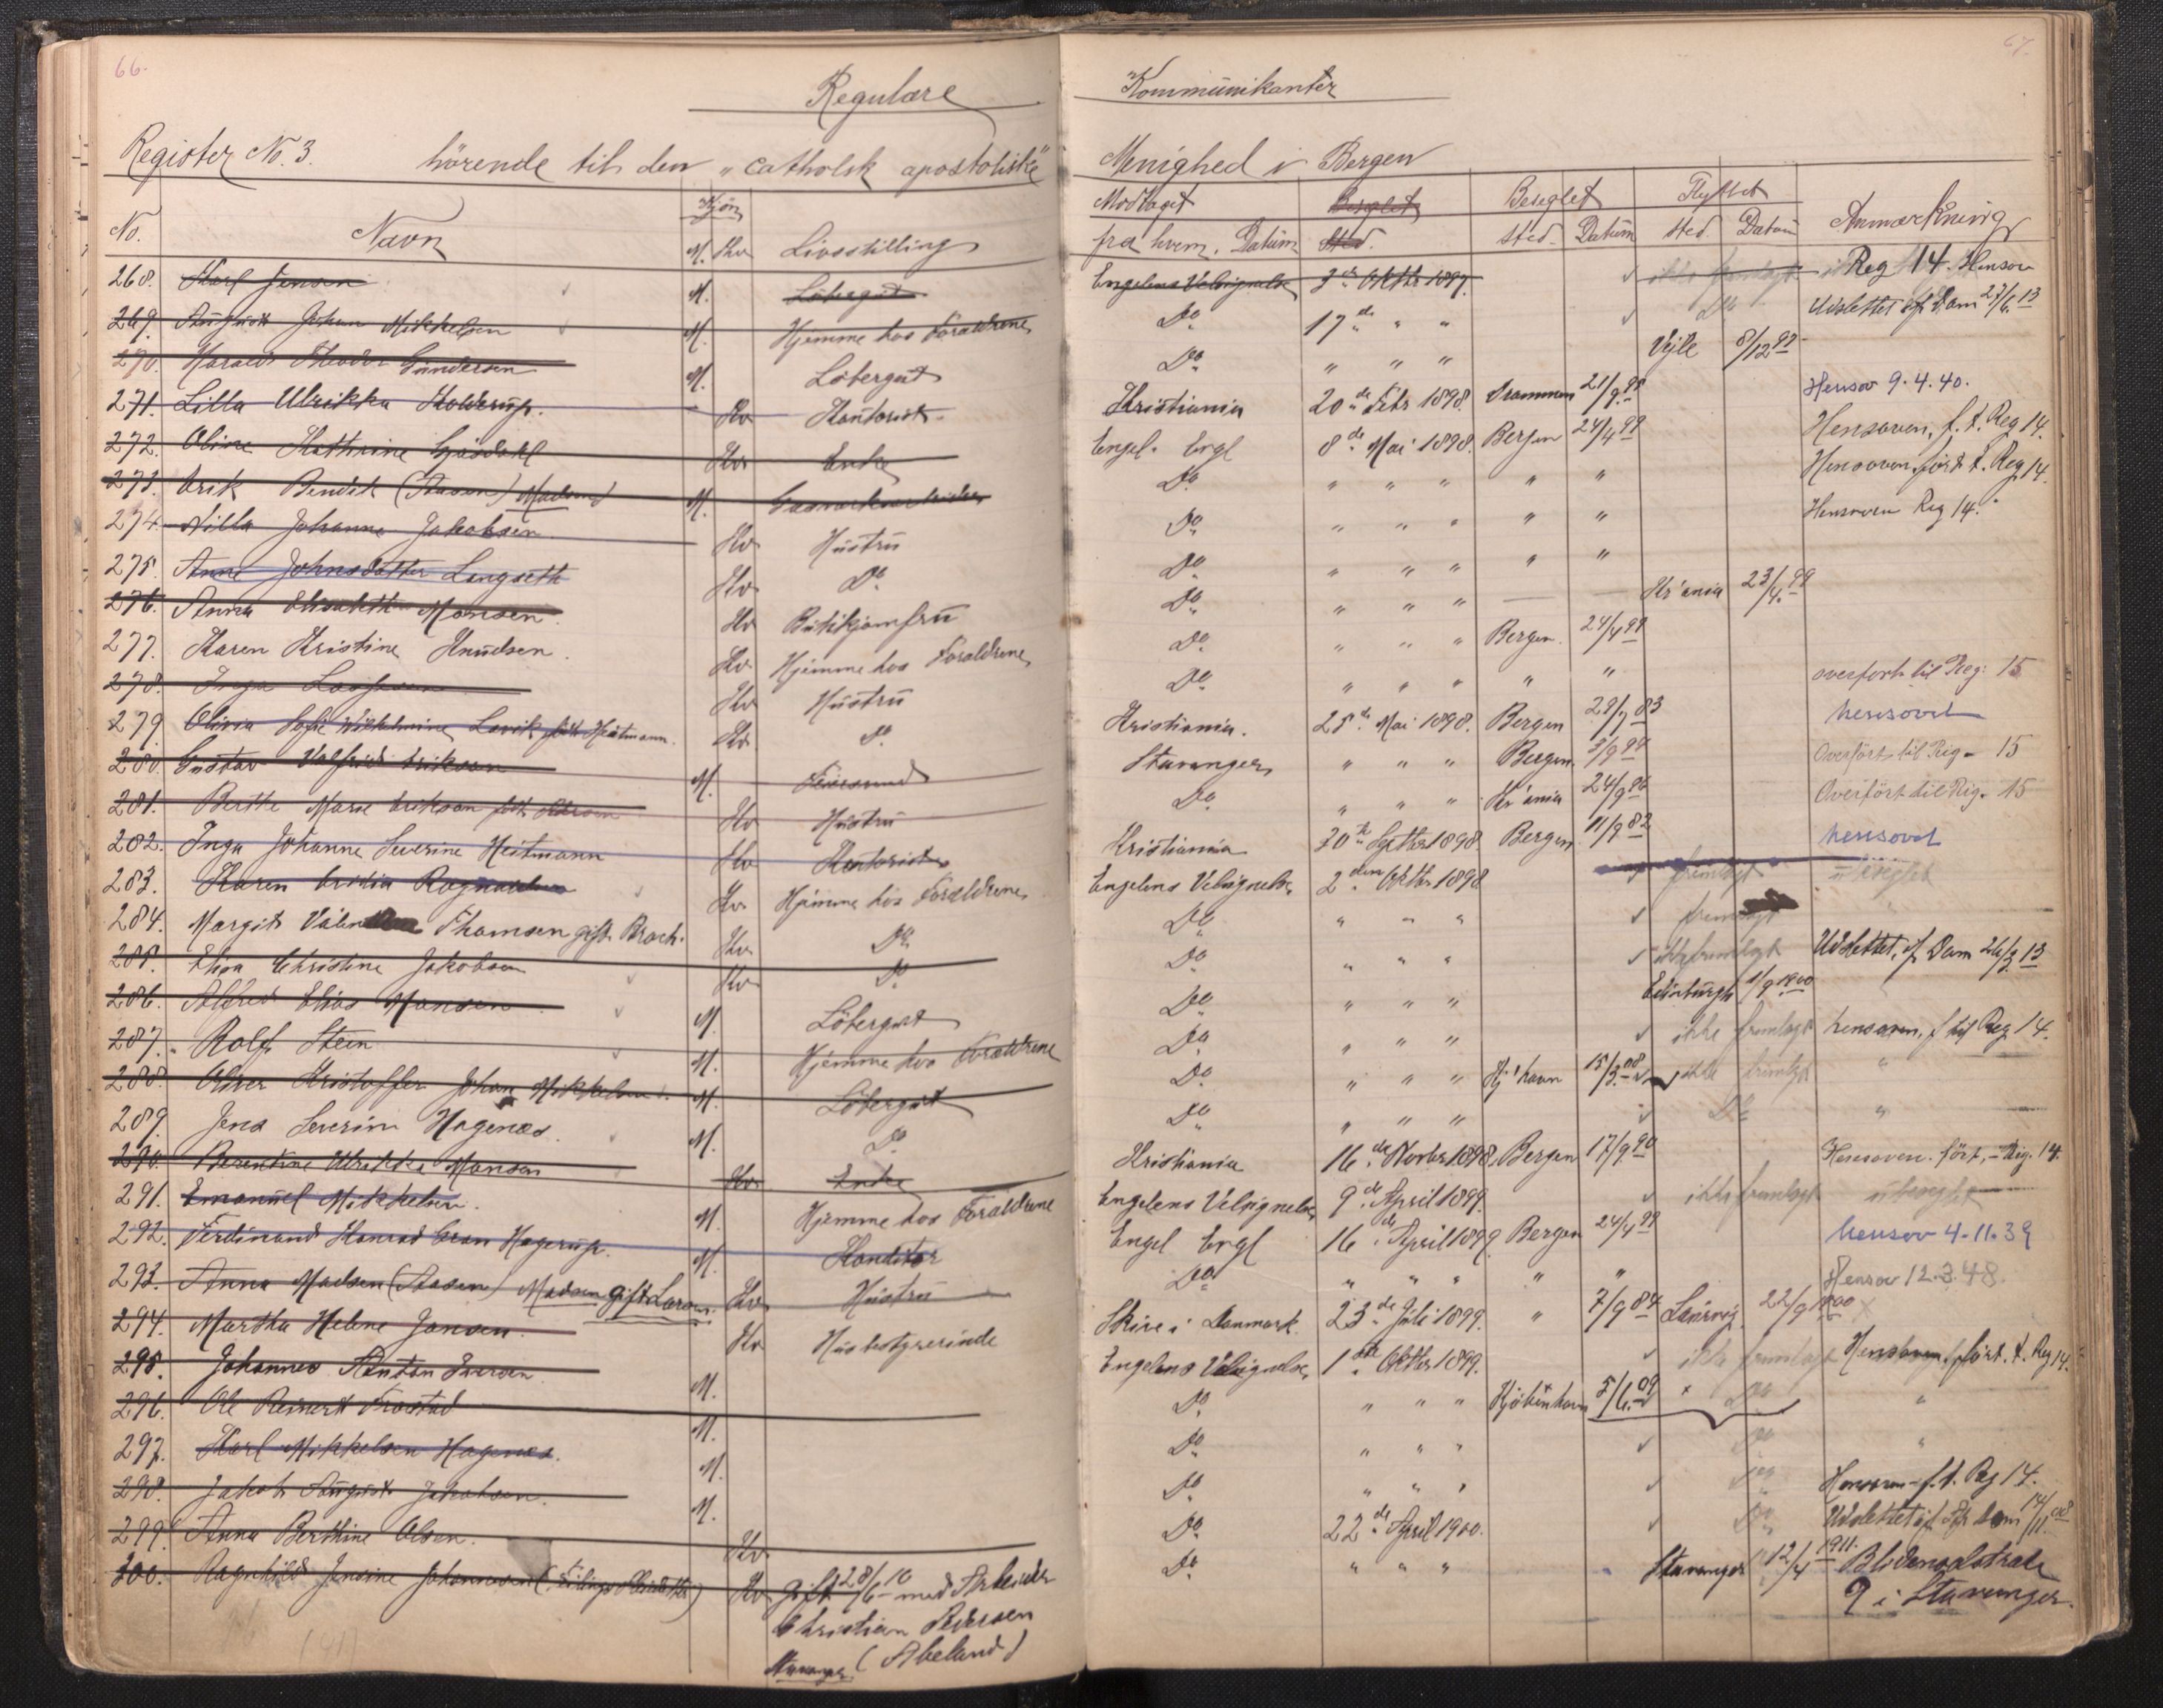 66.
67.
Regulære Kommunikanter
Register No. 3. hörende til den „catholsk apostoliske" Menighed i Bergen
No. Navn Kjön Livsstilling Modtaget Beseglet Beseglet Flyttet Anmærkning
M. Kv. fra hvem. Datum Sted. sted. Datum sted. Datum
268. Karl Jensen M. Löbergut Engelens Velsignelse 3die Oktbr 1897. ikke fremlagt Reg 14. Hensov
269. August Johan Mikkelsen M. Hjemme hos Forældrene Do 17de " " Do Udslettet 27/6.13
270. Harald Theodor Gundersen M. Löbergut Do " " " Vejle 8/12 97
271. Lilla Ulrikka Holdrup. Kv Kontorist Kristiania 20de Febr 1898. Drammen 21/9.95 Hensov 9.4.40.
272. Oline Kathrine Gjösdahl Kv Enke Engel. Ergl 8de Mai 1898. Bergen 24/4 99 Hensoven, f. t. Reg 14.
273. Erik Bendik (Aasen) Madsen M. Gasværksarbeider Do " " " " " Hensoven, fört t. Reg 14.
274. Nilla Johanne Jakobsen Kv Hustru Do " " " " " Hensoven Reg 14.
275. Anne Johnsdatter Langseth Kv Do Do " " " " "
276. Anna Elisabeth Monsen Kv Butikjomfru Do " " " — — Kr'ania 23/4.99
277. Karen Kristine Knudsen. Kv Hjemme hos Forældrene Do " " " Bergen. 24/4 99
278. Inga Kv Hustru Do " " " " " overfort til Reg: 15
279. Olivia Sofie Wilhelmine Lavik födt Heitmann. Kv Do Kristiania. 25de Mai 1898. Bergen 29/7 83 hensovet
280. Gustav Valfried Erikson M. Stavanger " " " Bergen. 3/9 94 Overfört til Reg. 15
281. Berthe Marie Erikson födt Kv Hustru Do " " " Kr'ania 24/9 96 Overfört til Reg. 15
282. Inga Johanne Severine Heitmann Kv Kontorist Kristiania 30te Septbr 1898 Bergen 11/9 82 hensovet
283. Karen Kv Hjemme hos Forældrene Engelens Velsignelse 2den Oktbr 1898 fremlagt ubeseglet
284. Margit Thomsen gift Brach. Kv Do Do " " " fremlagt
285. Elisa Christine Jakobsen Kv Do Do " " " ikke fremlagt Udslettet, if Dom 26/3 13
286. Alfred Elias Monsen M. Löbergut Do " " " Edinburgh 1/9 1900
287. Rolf Steen M. Hjemme hos Forældrene Do " " " ikke fremlagt hensoven, f til Reg 14.
288. Oliver Kristoffer Johan Mikkelsen M. Löbergut Do " " " Kj'havn 15/3.08 ikke fremlagt "
289. Jens Severin Hagenæs. M. Do Do " " " Do "
290. Berentine Ulrikke Monsen Kv Enke Kristiania 16de Novbr 1898. Bergen 17/9 90 Hensoven. fört, – Reg. 14.
291. Emanuel Mikkelsen. M. Hjemme hos Forældrene Engelens Velsignelse 9de April 1899. ikke fremlagt ubeseglet
292. Ferdinand Konrad Gran Hagerup. M. Konditor Engel Ergl 16de April 1899 Bergen 24/4 99 hensov 4-11.39
293. Anna Madsen (Aasen) Madsen gift Larsen. Kv Hustru Do " " " " " Hensov 12.3.48.
294. Martha Helene Jansen. Kv Husbestyrerinde Skive i Danmark. 23de Juli 1899. " 7/9 84 Laurvig. 22/9 1900
295. Johannes Anton Iversen M. Engelens Velsignelse 1ste Oktbr 1899. ikke fremlagt Hensoven, fört. t. Reg 14.
296. Ole Reinert Frostad M. Do " " " Kjöbenhavn 5/6.09 Do "
297. Karl Mikkelsen Hagenæs. M. Do " " " Do "
298. Jakob August Jakobsen. M. Do " " " Do Hensoven – f. t. Reg 14.
299. Anna Berthine Olsen. Kv Do 22de April 1900. Do Udslettet if Dom 14/11.08
300. Ragnhild Jensine Johannesen Kv gift 28/6 10 med Arbeider Do " " " Stavanger 12/4 1911. Blidensolstrade
Christian Pedersen 9 i Stavanger.
Stavanger. (Abeland)
(41)